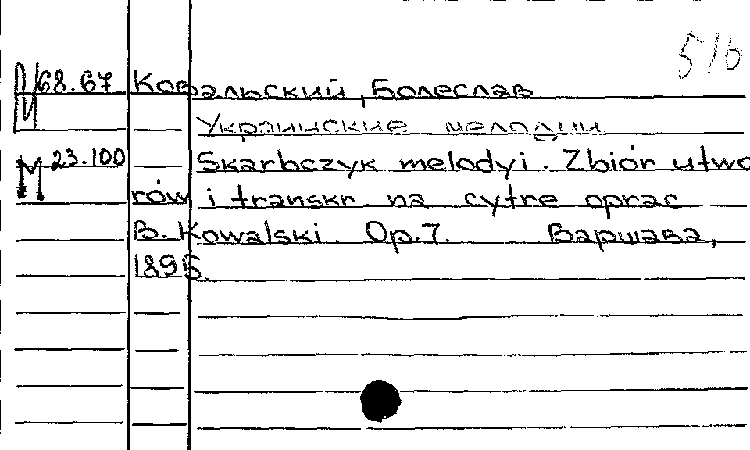 516
М 68.67 Ковальский, Болеслав
Украинские мелодии
М 23.100 Skarbczyk melodyi. Zbiór utwo
rów i transkr. na cytrę oprac
B. Kowalski. Op.7. Варшава,
1895.